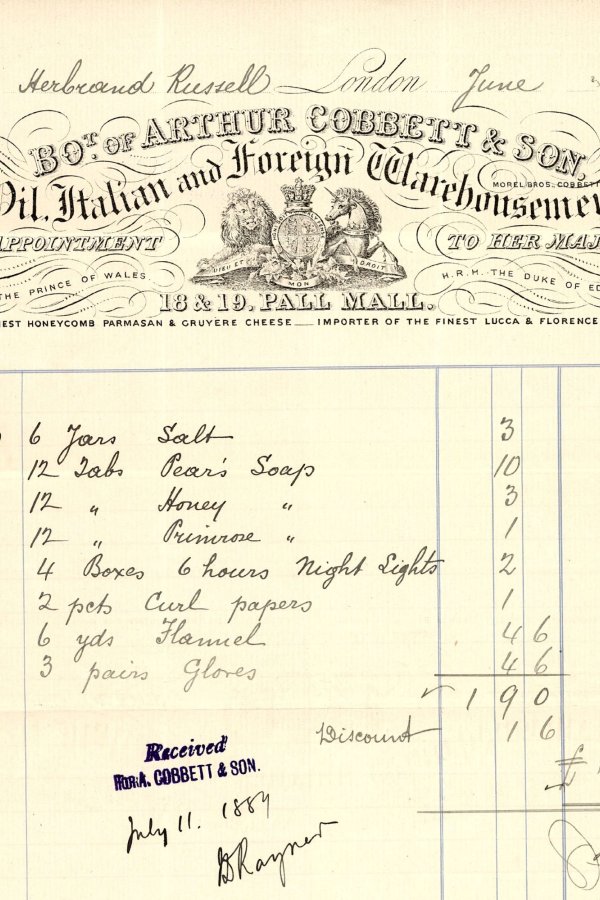 Herbrand Russell London June
BOT. OF ARTHUR COBBETT & SON,
Oil, Italian and Foreign Warehousemen
MOREL BROS. COBBETT
APPOINTMENT TO HER MA
DIEU ET MON DROIT
THE PRINCE OF WALES H.R.H. THE DUKE OF ED
18 & 19, PALL MALL.
EST HONEYCOMB PARMASAN & GRUYERE CHEESE IMPORTER OF THE FINEST LUCCA & FLORENCE
6 Jars Salt 3
12 Tabs Pear's Soap 10
12 " Honey " 3
12 " Primrose " 1
4 Boxes 6 hours Night Lights 2
2 pcts Curl papers 1
6 yds Flannel 4 6
3 pairs Gloves 4 6
1 9 0
Discount 1 6
£
Received
A. COBBETT & SON.
July 11. 1889
Rayner